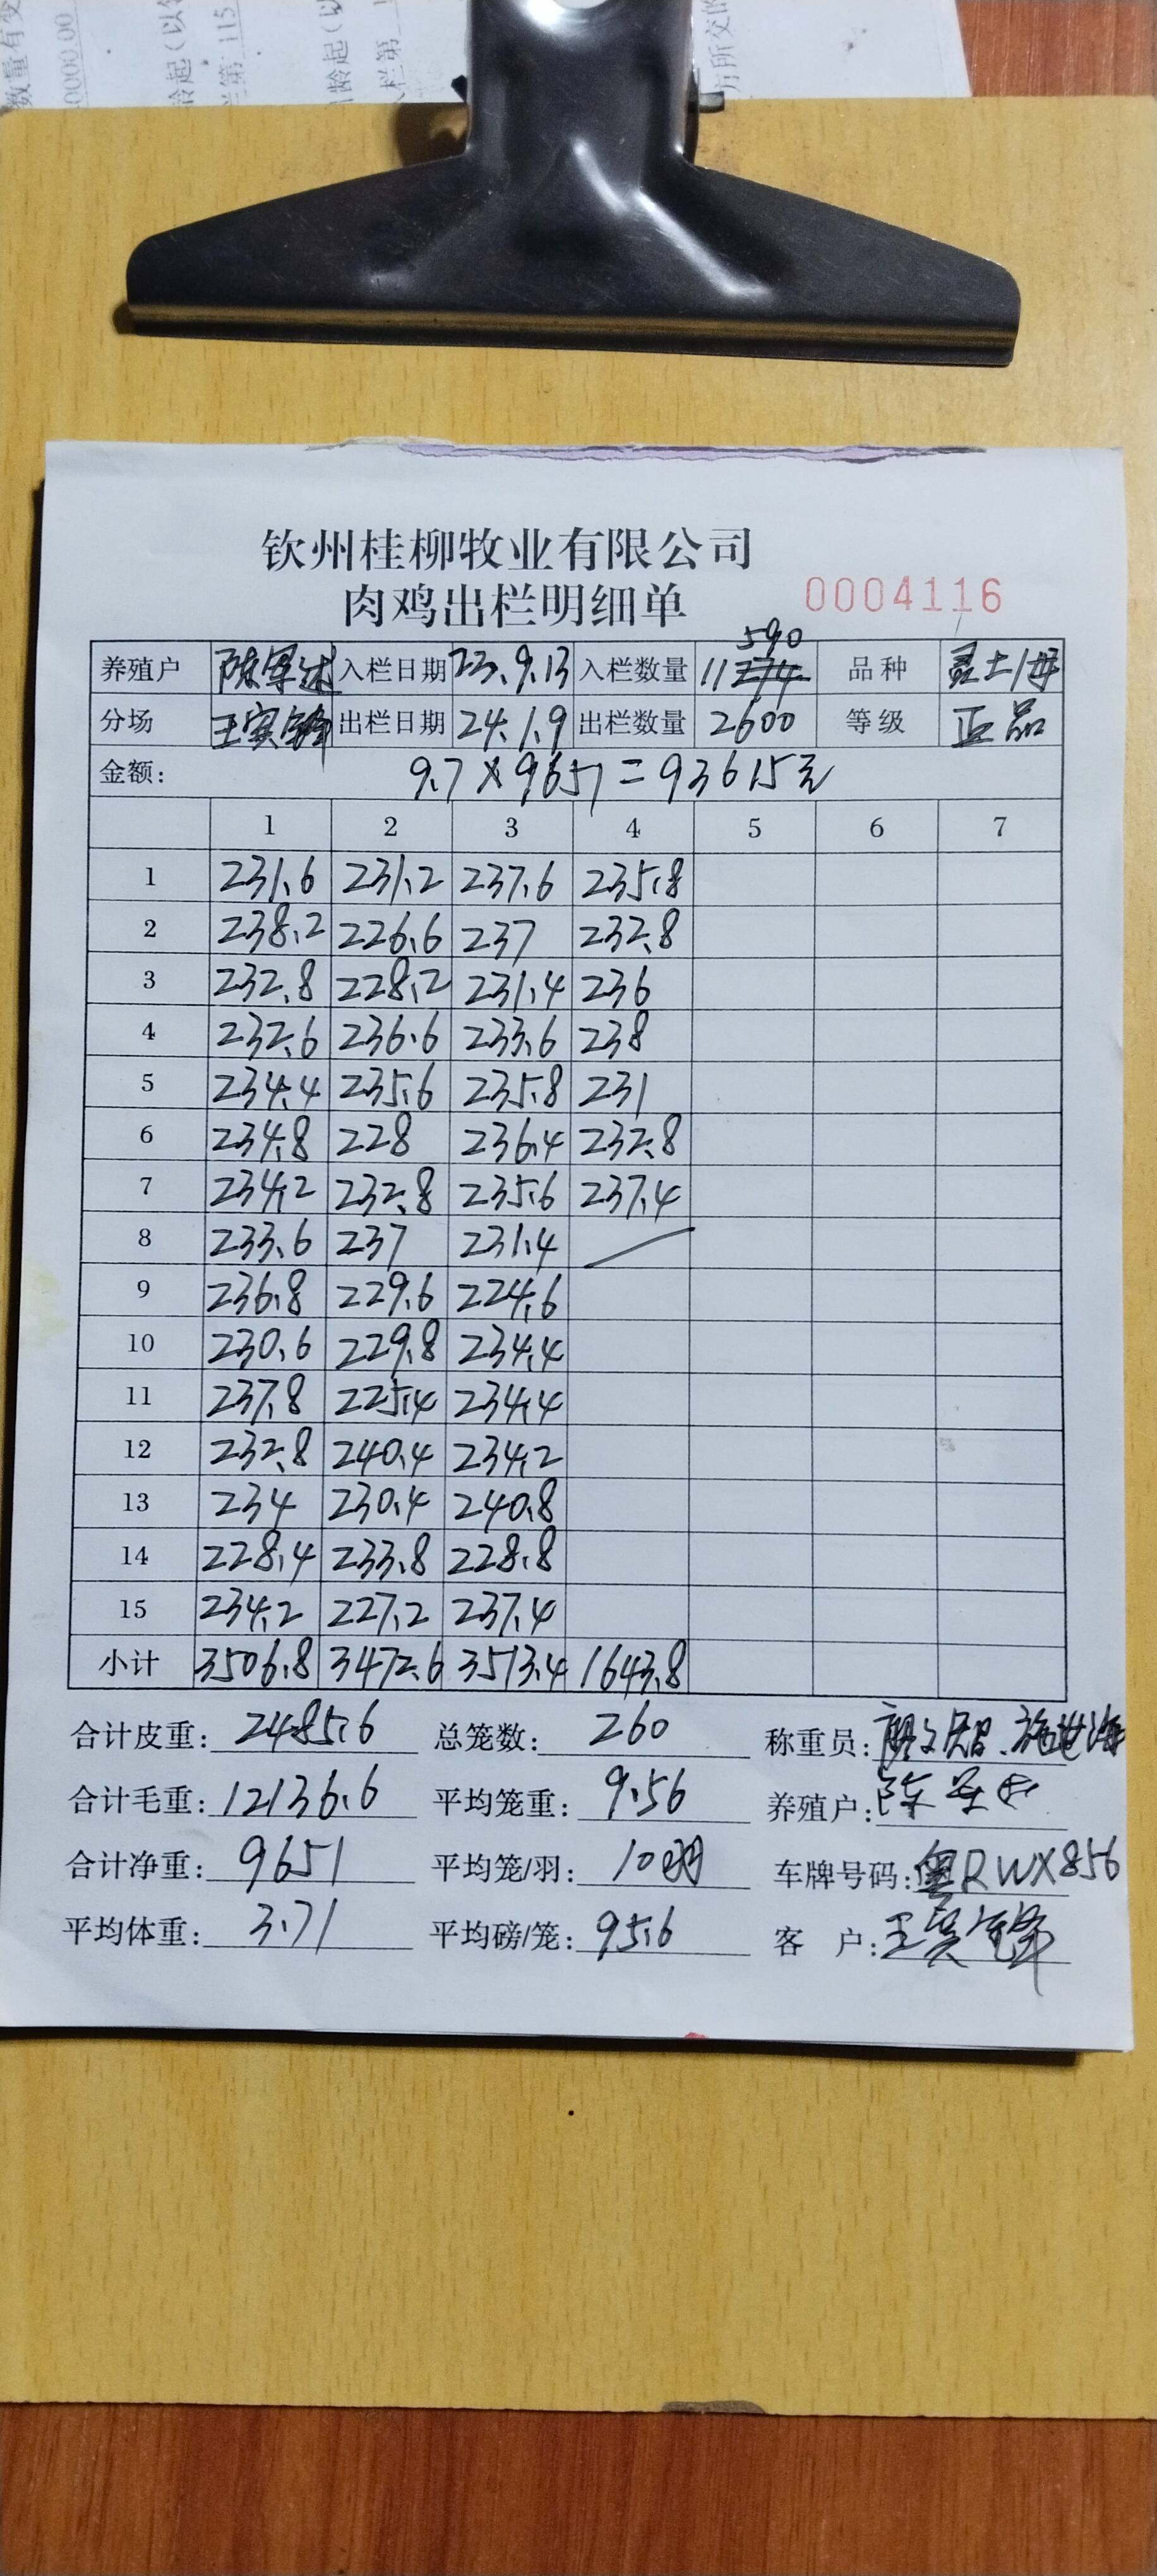 数量有变
0000.00
栏第 115
龄起(以
栏第
方所交的
钦州桂柳牧业有限公司
肉鸡出栏明细单 0004116
590
养殖户 入栏日期 23.9.13 入栏数量 11274 品种 灵土1母
分场 出栏日期 24.1.9 出栏数量 2600 等级 正品
金额: 9.7×9651=93615元
1 2 3 4 5 6 7
1 231.6 231.2 237.6 235.8
2 238.2 226.6 237 232.8
3 232.8 228.2 231.4 236
4 232.6 236.6 233.6 238
5 234.4 235.6 235.8 231
6 234.8 228 236.4 232.8
7 234.2 232.8 235.6 237.4
8 233.6 237 231.4
9 236.8 229.6 224.6
10 230.6 229.8 234.4
11 237.8 225.4 234.4
12 232.8 240.4 234.2
13 234 230.4 240.8
14 228.4 233.8 228.8
15 234.2 227.2 237.4
小计 3506.8 3472.6 3513.4 1643.8
合计皮重: 2485.6 总笼数: 260 称重员:
合计毛重: 12136.6 平均笼重: 9.56 养殖户:
合计净重: 9651 平均笼/羽: 10羽 车牌号码: 粤RWX856
平均体重: 3.71 平均磅/笼: 95.6 客 户: